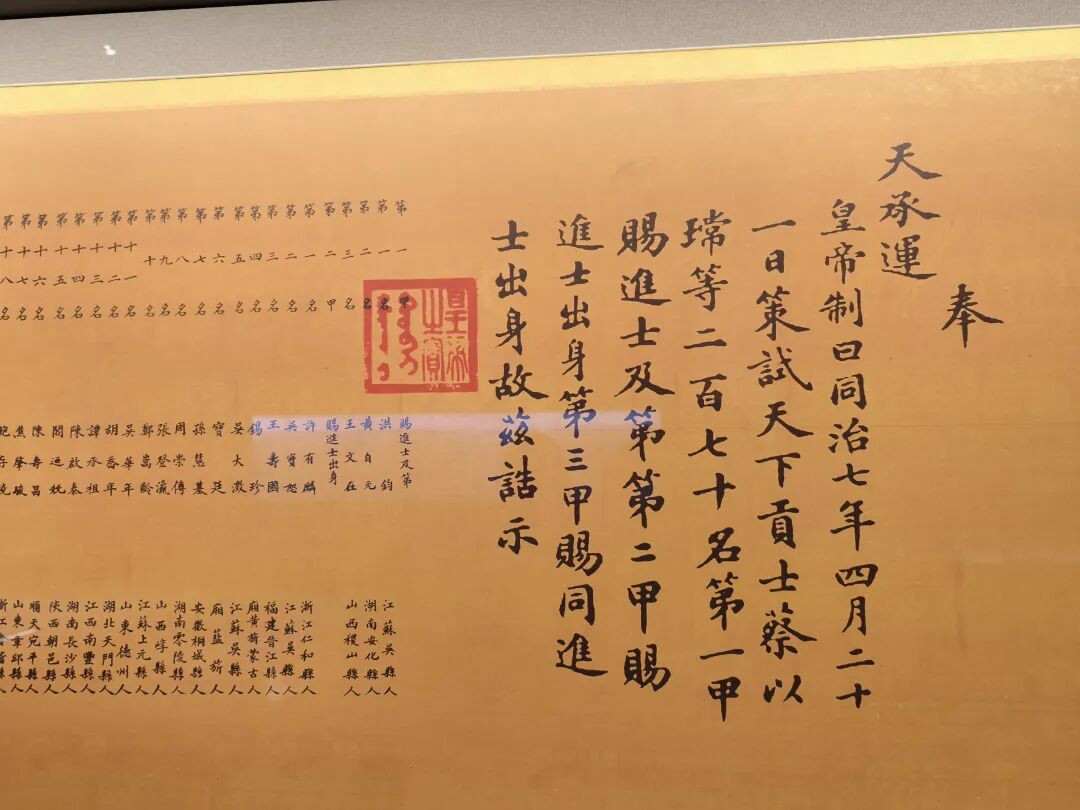 奉
天承運
皇帝制曰同治七年四月二十
一日策試天下貢士蔡以
瑺等二百七十名第一甲
賜進士及第第二甲賜
進士出身第三甲賜同進
士出身故茲誥示
皇帝之寶
第一甲 賜進士及第
第一名 洪鈞 江蘇吳縣人
第二名 黃自元 湖南安化縣人
第三名 王文在 山西稷山縣人
第二甲 賜進士出身
第一名 許有麟 浙江仁和縣人
第二名 吳寶恕 江蘇吳縣人
第三名 王壽國 福建晉江縣人
第四名 錫珍 廂黃旂蒙古人
第五名 吳大澂 江蘇吳縣人
第六名 寶廷 廂藍旂人
第七名 孫慧基 安徽桐城縣人
第八名 周崇傅 湖南零陵縣人
第九名 張登瀛 山西崞縣人
第十名 鄭嵩齡 江蘇上元縣人
第十一名 吳華年 山東德州人
第十二名 胡喬年 湖北天門縣人
第十三名 譚承祖 江西南豐縣人
第十四名 陳啟泰 湖南長沙縣人
第十五名 閻迺竑 陝西朝邑縣人
第十六名 陳壽昌 順天宛平縣人
第十七名 焦肇駿 山東章邱縣人
第十八名 鮑存曉 浙江會稽縣人